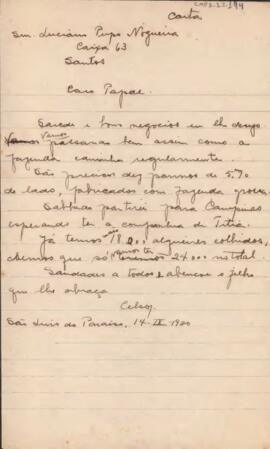 Carta
Snr. Luciano Pupo Nogueira
Caixa 63
Santos
Caro Papae.
Saude e bons negocios eu lhe desejo
Vamos passando bem assim como a
fazenda caminha regularmente.
São precisos dez pannos de 5,70
de lado, fabricados com fazenda grossa.
Sabbado partirei para Campinas
esperando ter a companhia de Titia.
Já temos 18.000 alqueires colhidos,
achamos que só teremos 24.000 no total.
Saudades a todos e abençoe o filho
que lhe abraça
Celso
São Luis do Paraiso, 14-IX-1920